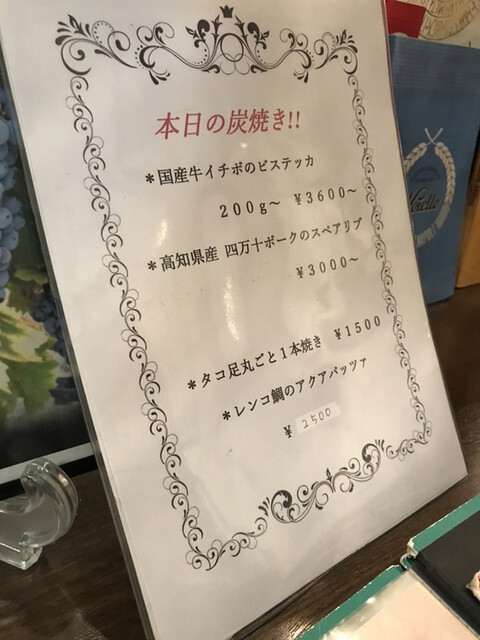 本日の炭焼き!!
＊国産牛イチボのビステッカ
２００ｇ～ ￥３６００～
＊高知県産 四万十ポークのスペアリブ
￥３０００～
＊タコ足丸ごと１本焼き ￥１５００
＊レンコ鯛のアクアパッツァ
￥ 2500
NAPOLI